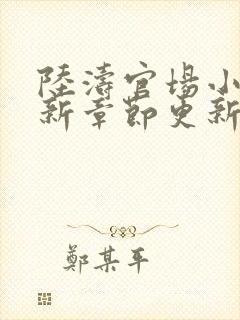 陸濤官場小
新章節更新
鄭某平